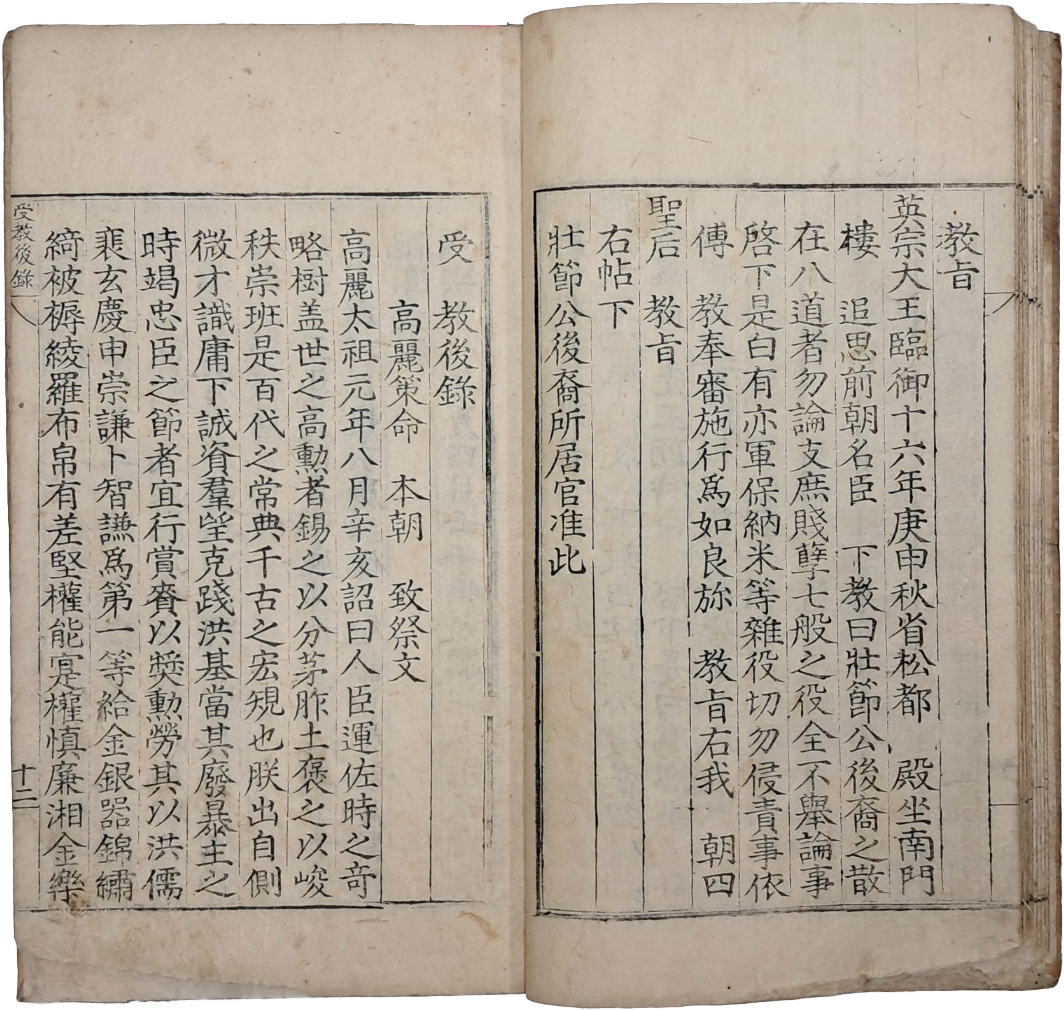 教旨
英宗大王臨御十六年庚申秋省松都　殿坐南門
樓　追思前朝名臣　下教曰壯節公後裔之散
在八道者勿論支庶賤孽七般之役全不舉論事
啓下是白有亦軍保納米等雜役切勿侵責事依
傅　教奉審施行爲如良旀　教旨右我　朝四
聖后　教旨
右帖下
壯節公後裔所居官准此
受　教後錄
高麗策命　本朝　致祭文
高麗太祖元年八月辛亥詔曰人臣運佐時之奇
略樹盖世之高勲者錫之以分茅胙土褒之以峻
秩崇班是百代之常典千古之宏規也朕出自側
微才識庸下誠資羣望克踐洪基當其廢暴主之
時竭忠臣之節者宜行賞賚以奬勲勞其以洪儒
裴玄慶申崇謙卜智謙爲第一等給金銀器錦繡
綺被褥綾羅布帛有差堅權能寔權慎廉湘金樂
受教後錄
十二